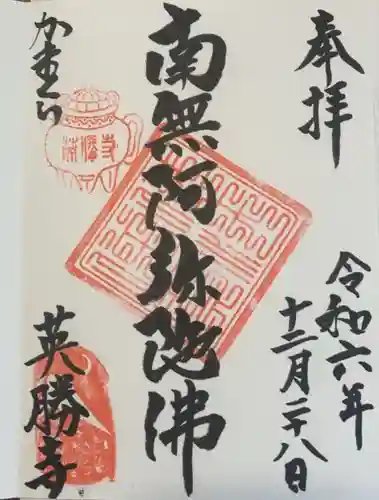 奉拝
令和六年
十二月二十八日
南無阿弥陀佛
かまくら
英勝寺